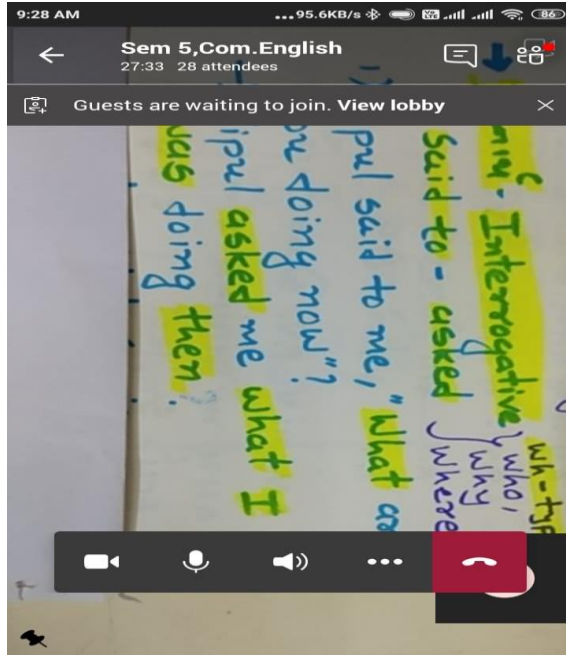 9:28 AM
...95.6KB/s
86
Sem 5,Com.English
27:33 28 attendees
Guests are waiting to join. View lobby
Interrogative
wh-typ
who,
why
where
said to - asked
pul said to me, "What ar
ou doing now"?
ipul asked me what I
was doing then.